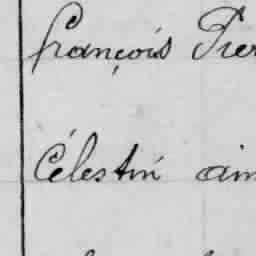 françois Pier
Célestin aim